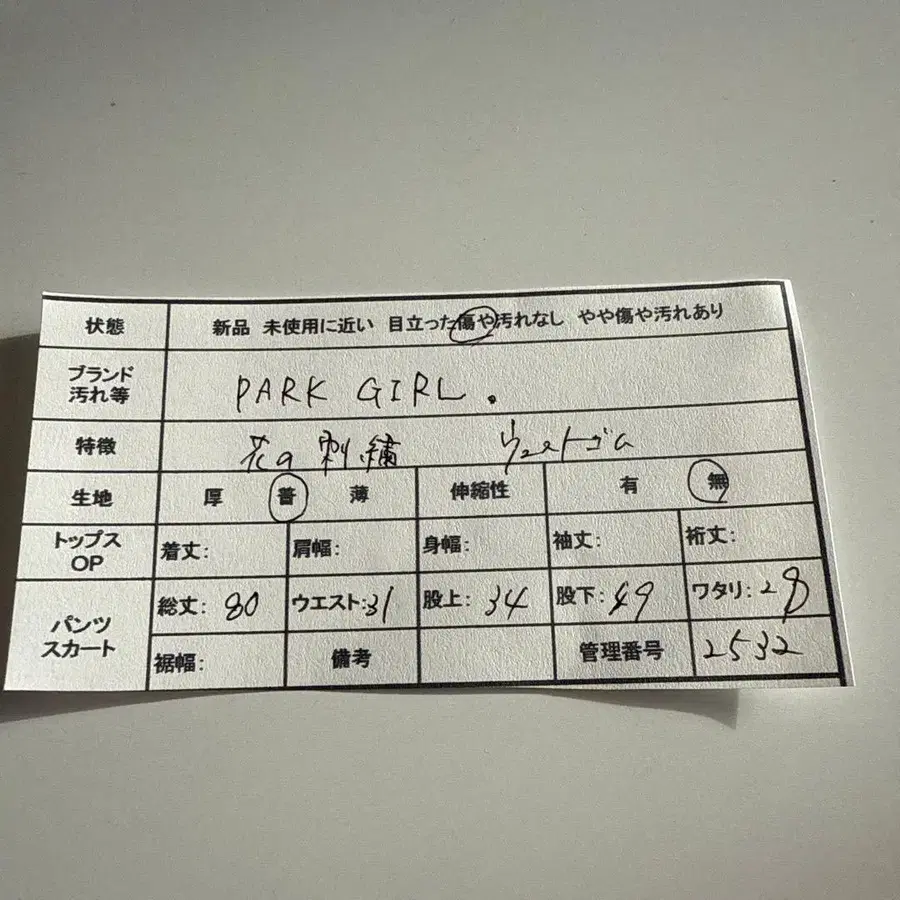 状態 新品 未使用に近い 目立った傷や汚れなし やや傷や汚れあり
ブランド
汚れ等
PARK GIRL.
特徴 花の刺繍 ウエストゴム
生地 厚 普 薄 伸縮性 有 無
トップス
OP
着丈: 肩幅: 身幅: 袖丈: 裄丈:
パンツ
スカート
総丈: 80 ウエスト:31 股上: 34 股下: 49 ワタリ: 28
裾幅: 備考 管理番号 2532